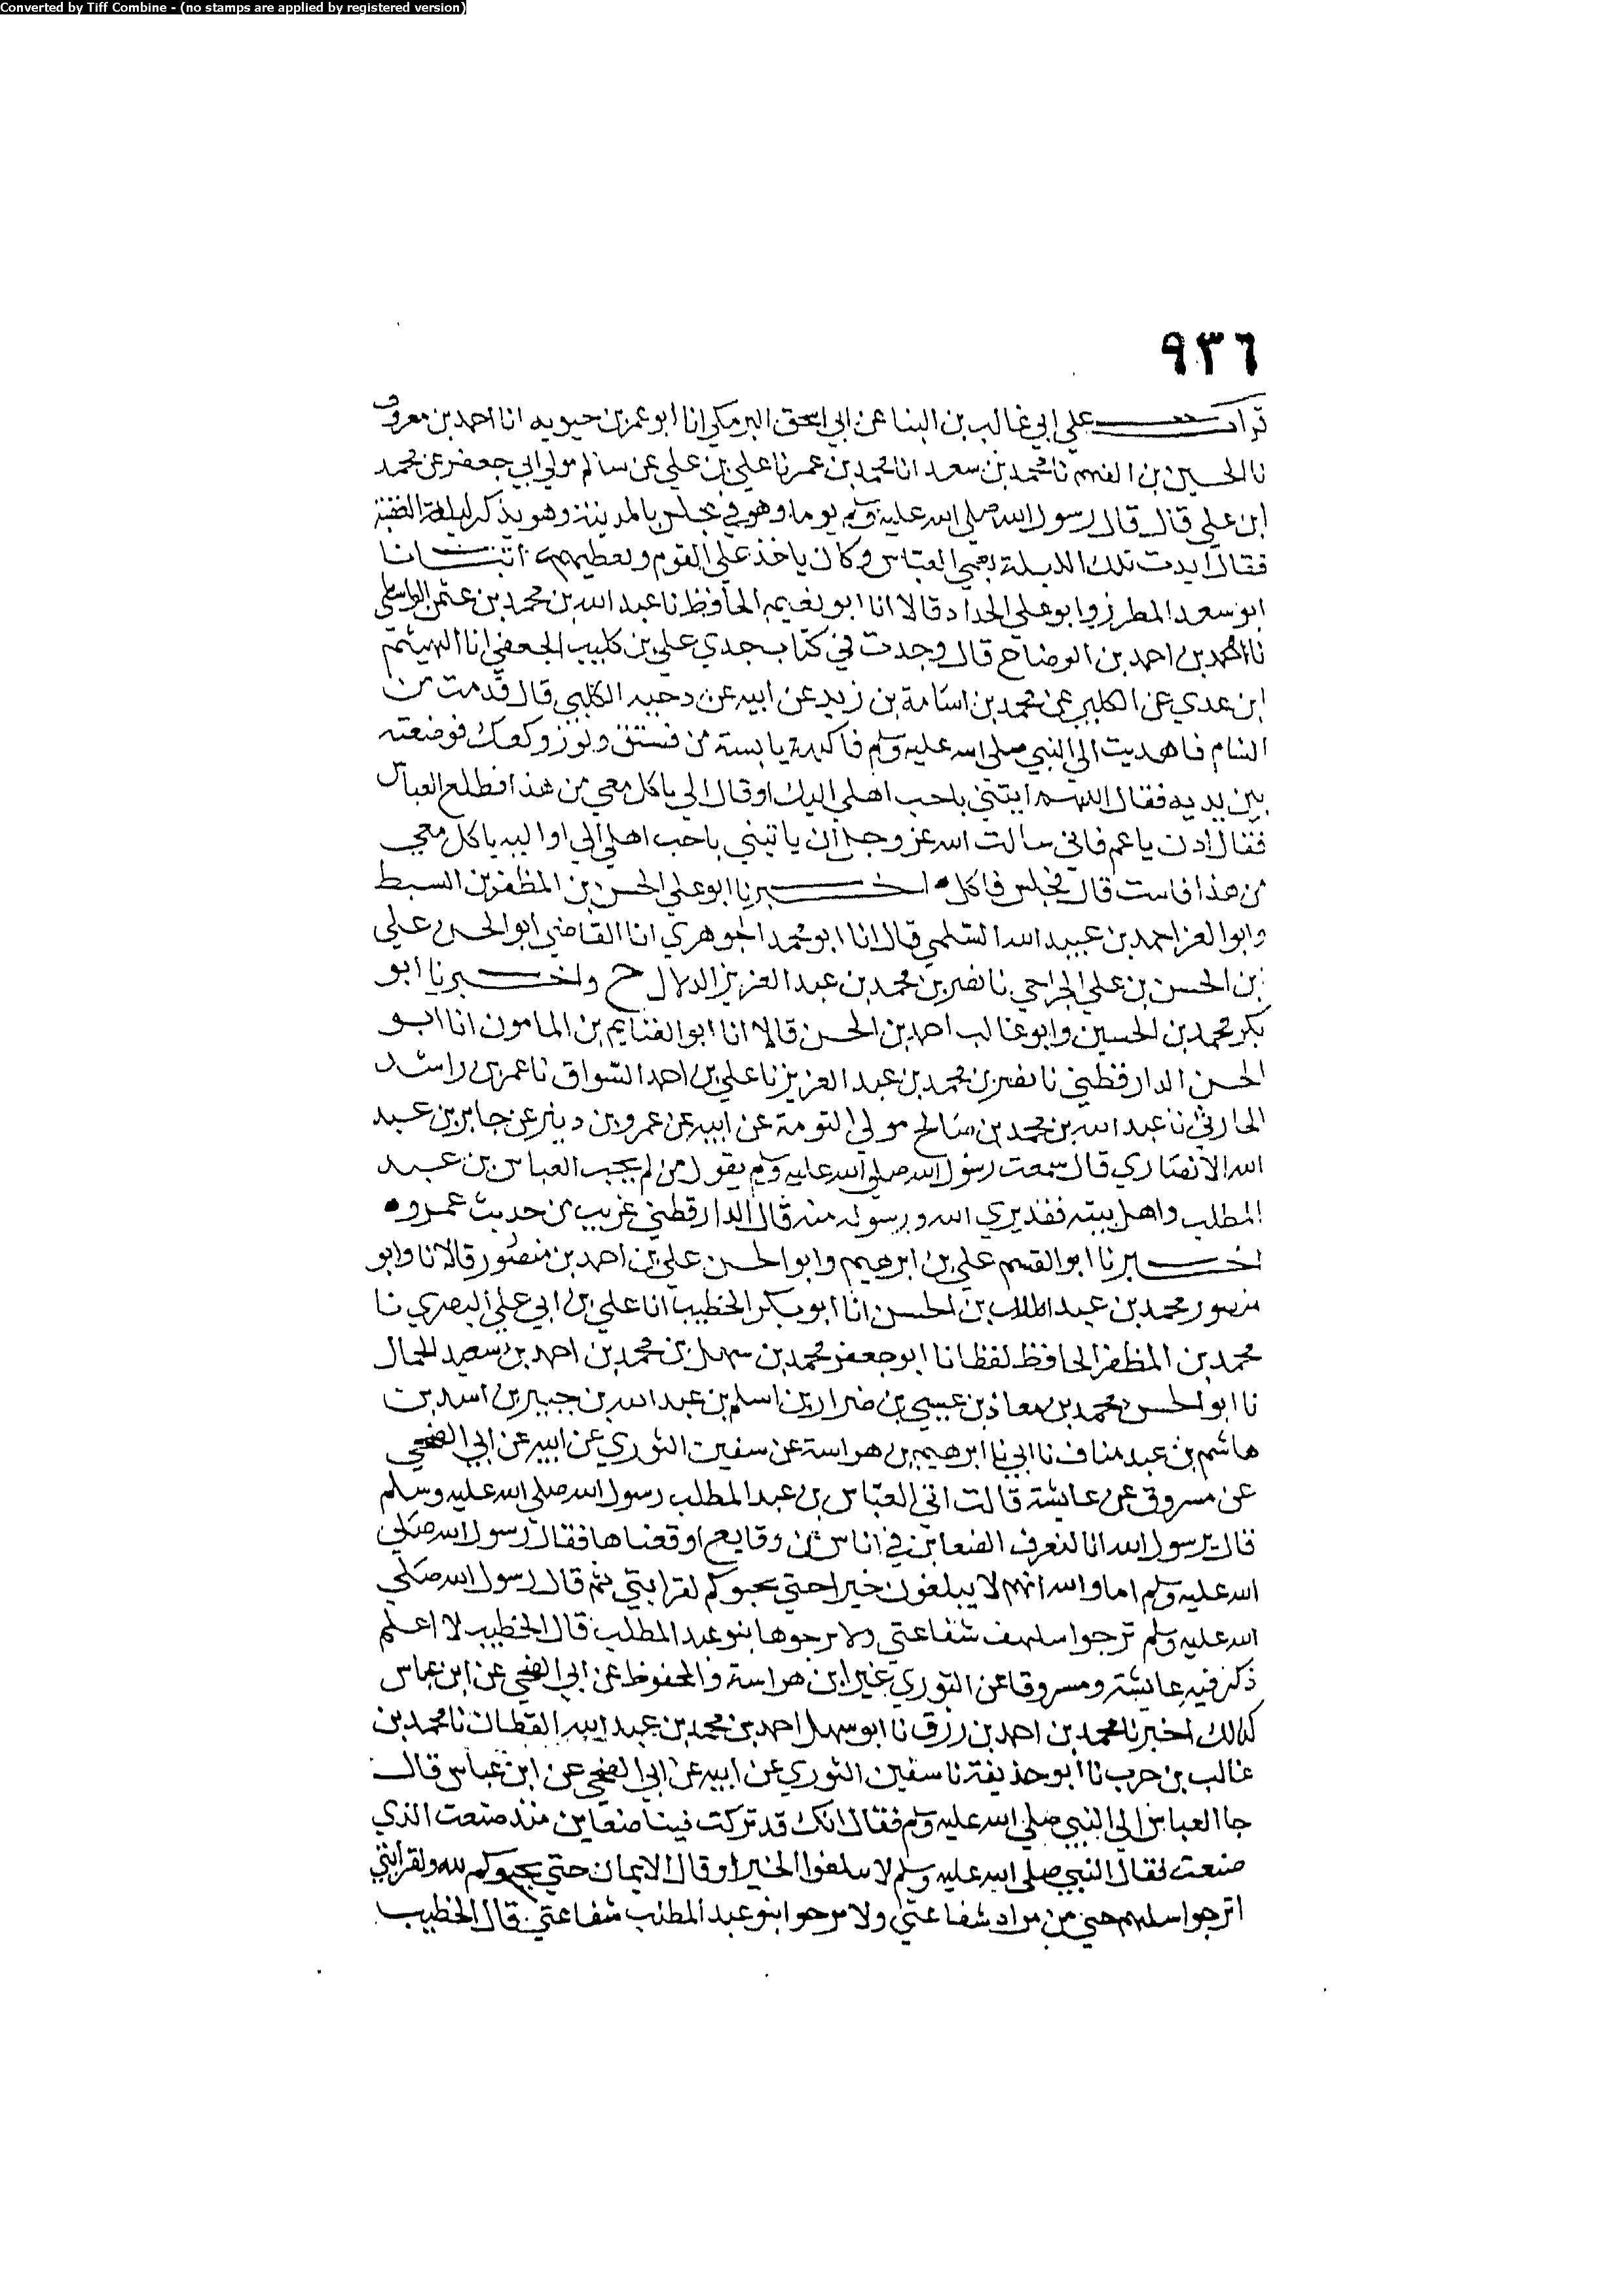 Converted by Tiff Combine - (no stamps are applied by registered version)
٩٣٦
قرات علي ابي غالب بن البنا عن ابي اسحق البرمكي انا ابو عمر بن حيويه انا احمد بن معروف
نا الحسين بن الفهم نا محمد بن سعد انا محمد بن عمر نا علي بن علي عن سالم مولي ابي جعفر عن محمد
ابن علي قال قال رسول الله صلى الله عليه وسلم يوما وهو في مجلس بالمدينة وهو يذكر ليلة العقبة
فقال ايدت تلك الليلة بعمي العباس وكان ياخذ علي القوم ويعطيهم انبانا
ابو سعد المطرز وابو علي الحداد قالا انا ابو نعيم الحافظ نا عبد الله بن محمد بن عثمن الواسطي
نا احمد بن احمد بن الوضاح قال وجدت في كتاب جدي علي بن كليب الجعفي انا الهيثم
ابن عدي عن الكلبي عن محمد بن اسامة بن زيد عن ابيه عن دحيه الكلبي قال قدمت من
الشام فاهديت الي النبي صلى الله عليه وسلم فاكهة يابسة من فستق ولوز وكعك فوضعته
بين يديه فقال اللهم ايتني باحب اهلي اليك او قال الي ياكل معي من هذا فطلع العباس
فقال ادن يا عم فاني سالت الله عز وجل ان ياتيني باحب اهلي الي او اليه ياكل معي
من هذا فاست قال فجلس فاكل اخبرنا ابو علي الحسن بن المظفر بن السبط
وابو العز احمد بن عبيد الله السلمي قالا انا ابو محمد الجوهري انا القاضي ابو الحسن علي
بن الحسن بن علي الجراحي نا نصر بن محمد بن عبد العزيز الدلال ح واخبرنا ابو
بكر محمد بن الحسين وابو غالب احمد بن الحسن قالا انا ابو الغنايم بن المامون انا ابو
الحسن الدارقطني نا نصر بن محمد بن عبد العزيز نا علي بن احمد السواق نا عمر بن راشد
الحارثي نا عبد الله بن محمد بن صالح مولي التومة عن ابيه عن عمرو بن دينر عن جابر بن عبد
الله الانصاري قال سمعت رسول الله صلى الله عليه وسلم يقول من لم يحب العباس بن عبد
المطلب واهل بيته فقد بري الله ورسوله منه قال الدارقطني غريب من حديث عمرو
اخبرنا ابو القسم علي بن ابرهيم وابو الحسن علي بن احمد بن منصور قالا نا وابو
منصور محمد بن عبد الملك بن الحسن انا ابو بكر الخطيب انا علي بن ابي علي البصري نا
محمد بن المظفر الحافظ لفظا نا ابو جعفر محمد بن سهل بن محمد بن احمد بن سعيد الجمال
نا ابو الحسن محمد بن معاذ بن عيسي بن ضرار بن اسلم بن عبد الله بن جبير بن اسد بن
هاشم بن عبد مناف نا ابي نا ابرهيم بن هراسة عن سفين الثوري عن ابيه عن ابي الضحي
عن مسروق عن عايشة قالت اتي العباس بن عبد المطلب رسول الله صلى الله عليه وسلم
قال يرسول الله انا لنعرف الضغاين في اناس من وقايع اوقعناها فقال رسول الله صلى
الله عليه وسلم اما والله انهم لا يبلغون خيرا حتي يحبوكم لقرابتي ثم قال رسول الله صلى
الله عليه وسلم ترجوا سلهف شفاعتي ولا يرجوها بنو عبد المطلب قال الخطيب لا اعلم
ذكر فيه عايشة ومسروقا عن الثوري غير ابن هراسة والمحفوظ عن ابي الضحي عن ابن عباس
كذلك اخبرنا محمد بن احمد بن رزق نا ابو سهل احمد بن محمد بن عبد الله القطان نا محمد بن
غالب بن حرب نا ابو حذيفة نا سفين الثوري عن ابيه عن ابي الضحي عن ابن عباس قال
جا العباس الي النبي صلى الله عليه وسلم فقال انك قد تركت فينا ضغاين منذ صنعت الذي
صنعت فقال النبي صلى الله عليه وسلم لا يبلغوا الخير او قال الايمان حتي يحبوكم لله ولقرابتي
اترجوا سلهم حي من مراد شفاعتي ولا يرجوا بنو عبد المطلب شفاعتي قال الخطيب